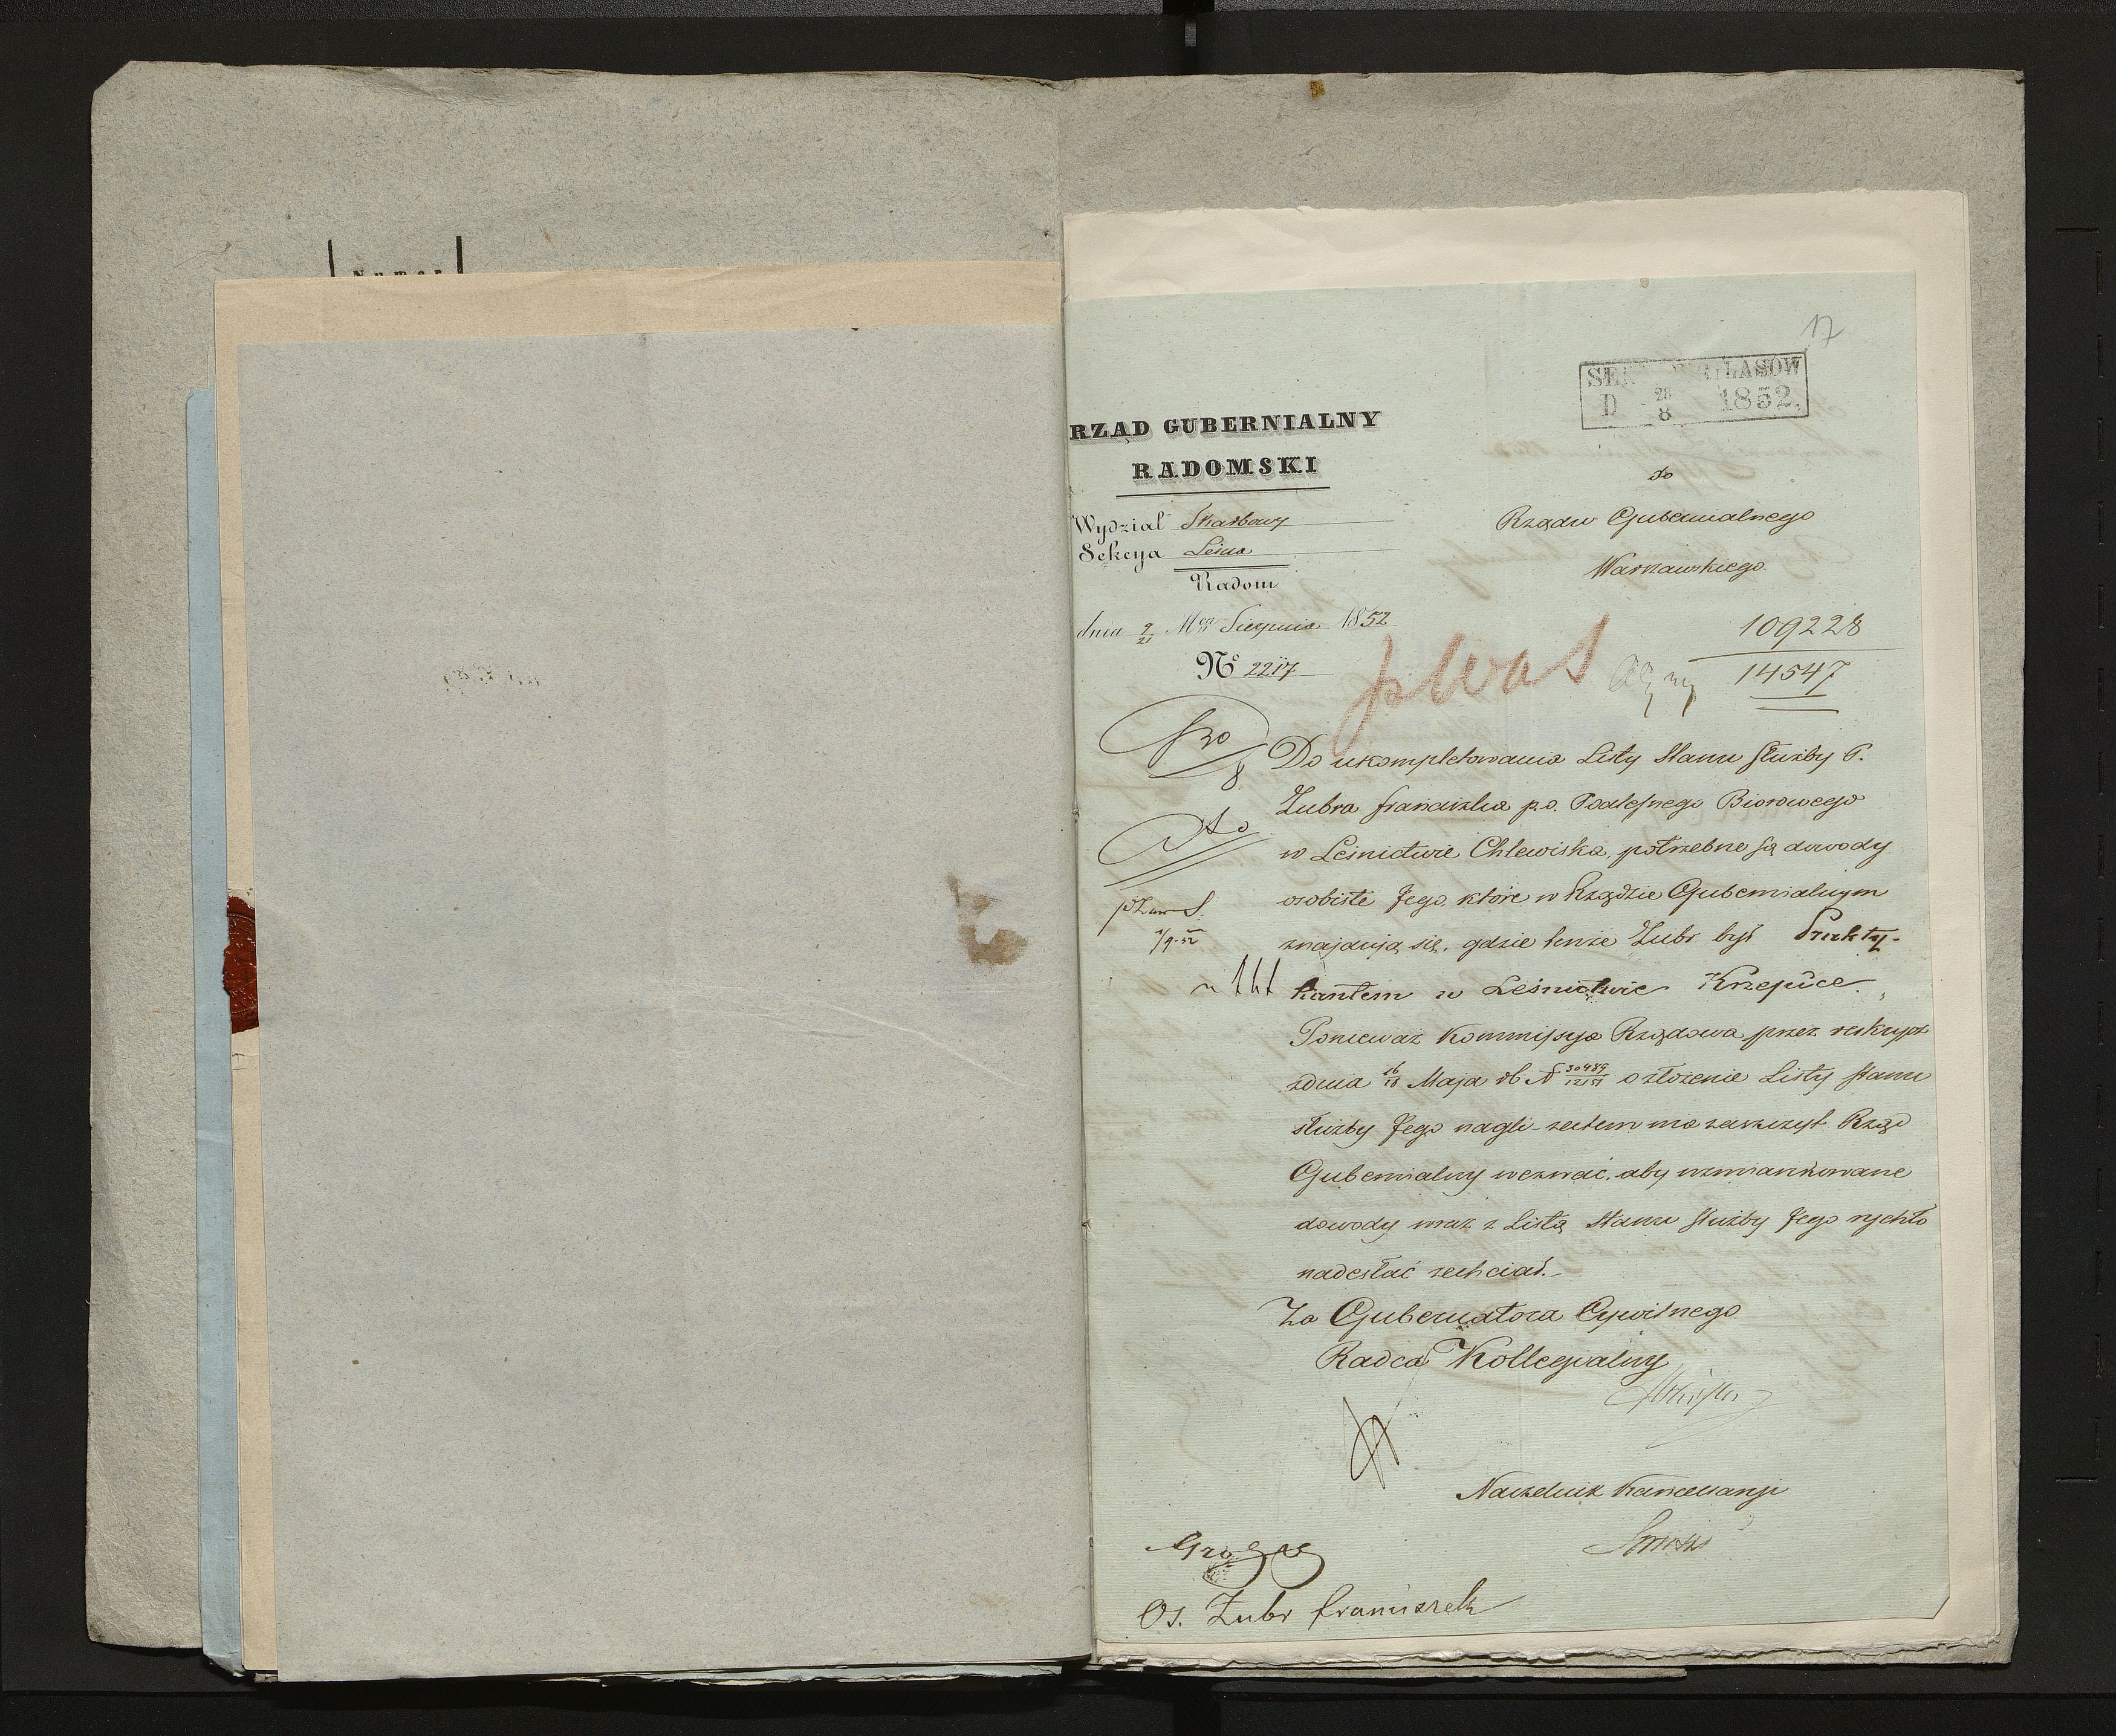 Numer
17
LASÓW
D 28/8 1852.
RZĄD GUBERNIALNY
RADOMSKI
Wydział Skarbowy
Sekcya Leśna
Radom
dnia 9/21 Mca Sierpnia 1852
Nº 2217
do
Rządu Gubernialnego
Warszawskiego.
109228
14547
30/8
Do ukompletowania Listy Stanu służby P.
Żubra Franciszka p.o. Podleśnego Biorowego
w Leśnictwie Chlewiska, potrzebne są dowody
osobiste Jego, które w Rządzie Gubernialnym
znajdują się, gdzie tenże Żubr był Prakty-
kantem w Leśnictwie Krzepice.
Ponieważ Kommissya Rządowa przez reskrypt
zdnia 16/28 Maja rb N 30489/12151 o złożenie Listy stanu
służby Jego nagli – zatem ma zaszczyt Rząd
Gubernialny wezwać, aby wzmiankowane
dowody wraz z Listą Stanu służby Jego rychło
nadesłać zechciał.
Za Gubernatora Cywilnego
Radca Kollegialny
Naczelnik Kancellaryi
Os. Żubr Franciszek